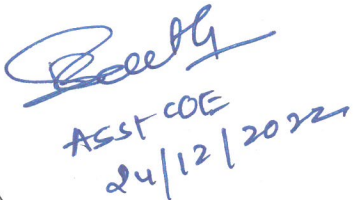 Asst COE
24/12/2022